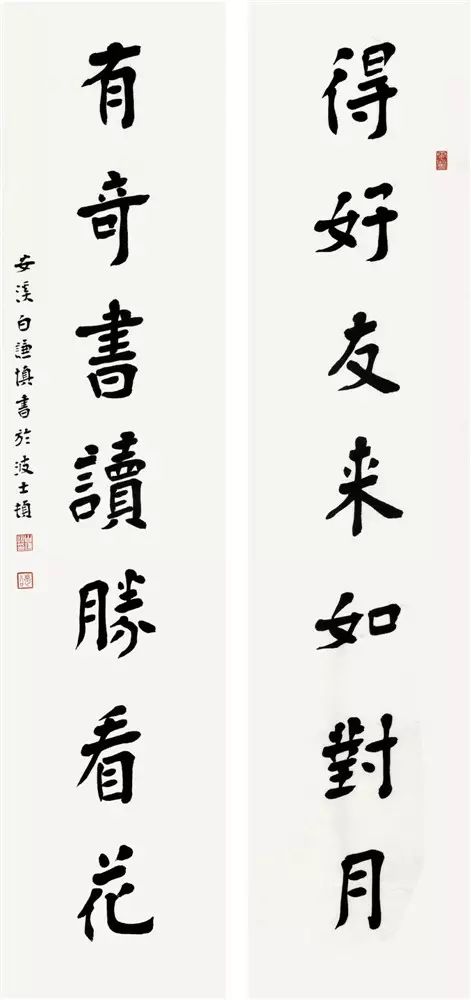 得好友来如對月
有奇書讀勝看花
安溪白謙慎書於波士頓